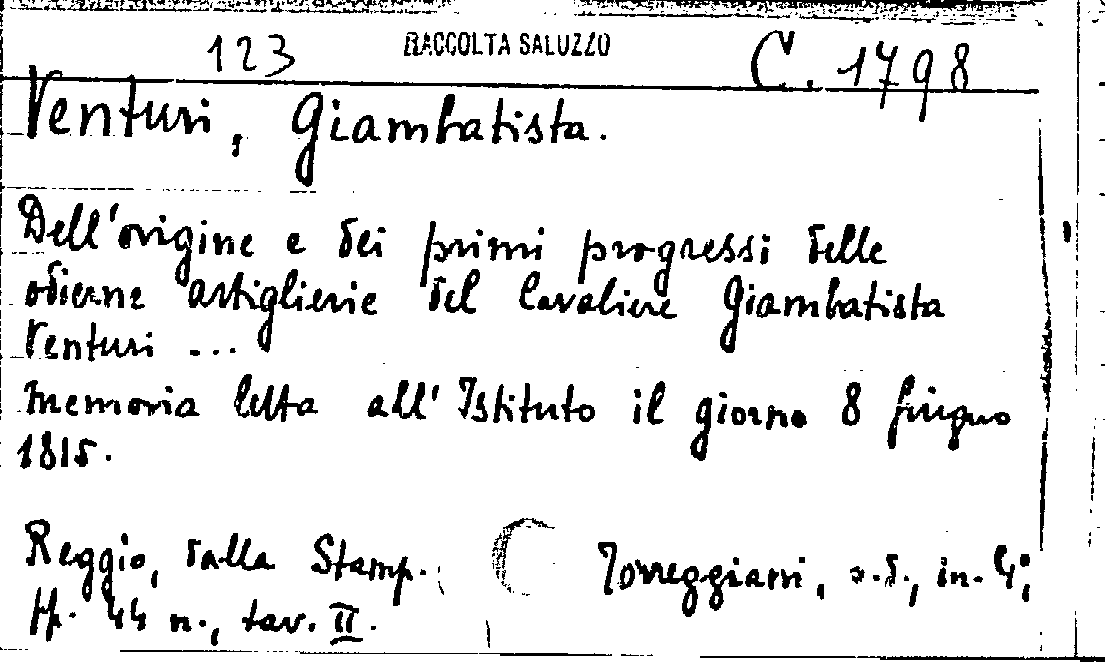 123 RACCOLTA SALUZZO C. 1798
Venturi, Giambatista.
Dell'origine e dei primi progressi delle
odierne artiglierie del Cavaliere Giambatista
Venturi ...
Memoria letta all'Istituto il giorno 8 giugno
1815.
Reggio, dalla Stamp. Torreggiani, s.d., in-4°,
pp. 44 n., tav. II.